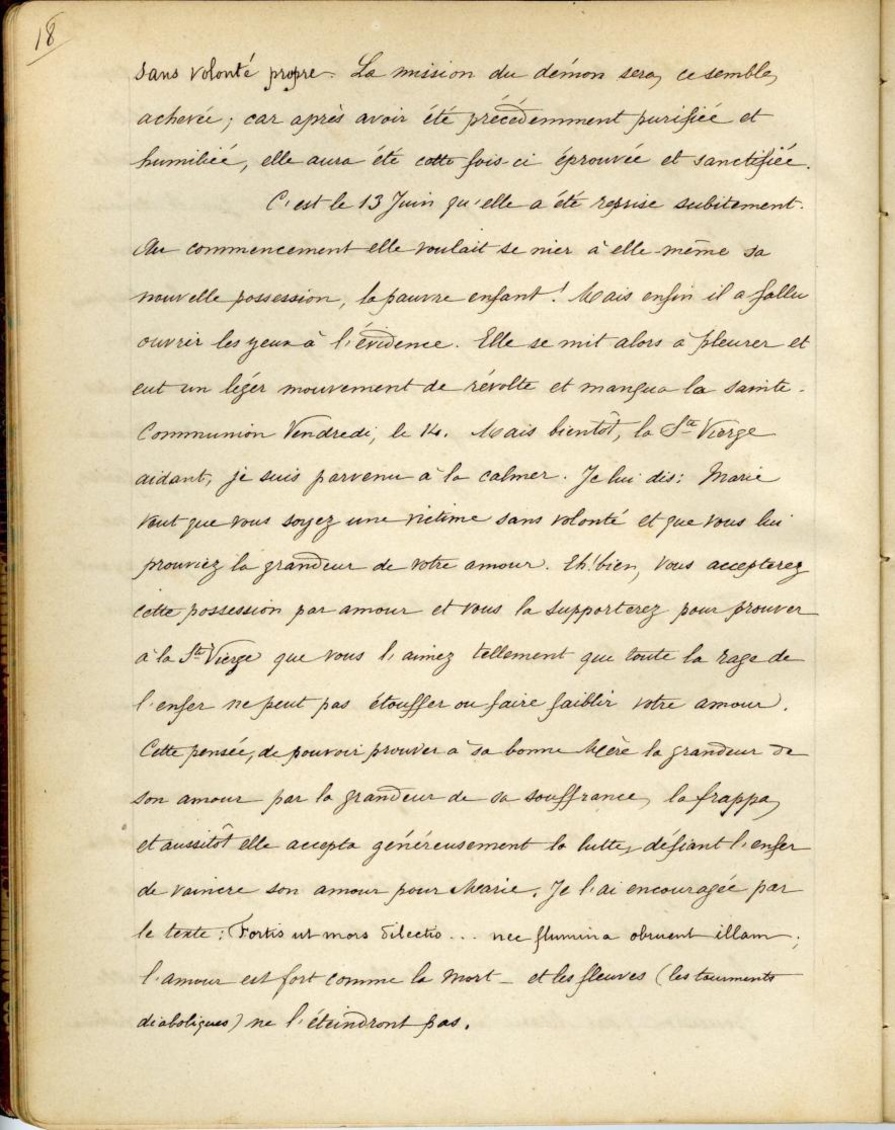 18
sans volonté propre. La mission du démon sera, ce semble,
achevée; car après avoir été précédemment purifiée et
humiliée, elle aura été cette fois-ci éprouvée et sanctifiée.
C'est le 13 Juin qu'elle a été reprise subitement.
Au commencement elle voulait se nier à elle-même sa
nouvelle possession, la pauvre enfant! Mais enfin il a fallu
ouvrir les yeux à l'évidence. Elle se mit alors à pleurer et
eut un léger mouvement de révolte et manqua la sainte-
Communion Vendredi, le 14. Mais bientôt, la Ste Vierge
aidant, je suis parvenu à la calmer. Je lui dis: Marie
veut que vous soyez une victime sans volonté et que vous lui
prouviez la grandeur de votre amour. Eh! bien, vous accepterez
cette possession par amour et vous la supporterez pour prouver
à la Ste Vierge que vous l'aimez tellement que toute la rage de
l'enfer ne peut pas étouffer ou faire faiblir votre amour.
Cette pensée, de pouvoir prouver à sa bonne Mère la grandeur de
son amour par la grandeur de sa souffrance, la frappa,
et aussitôt elle accepta généreusement la lutte, défiant l'enfer
de vaincre son amour pour Marie. Je l'ai encouragée par
le texte: Fortis ut mors dilectio... nec flumina obruent illam;
l'amour est fort comme la mort - et les fleuves (les tourments
diaboliques) ne l'éteindront pas.